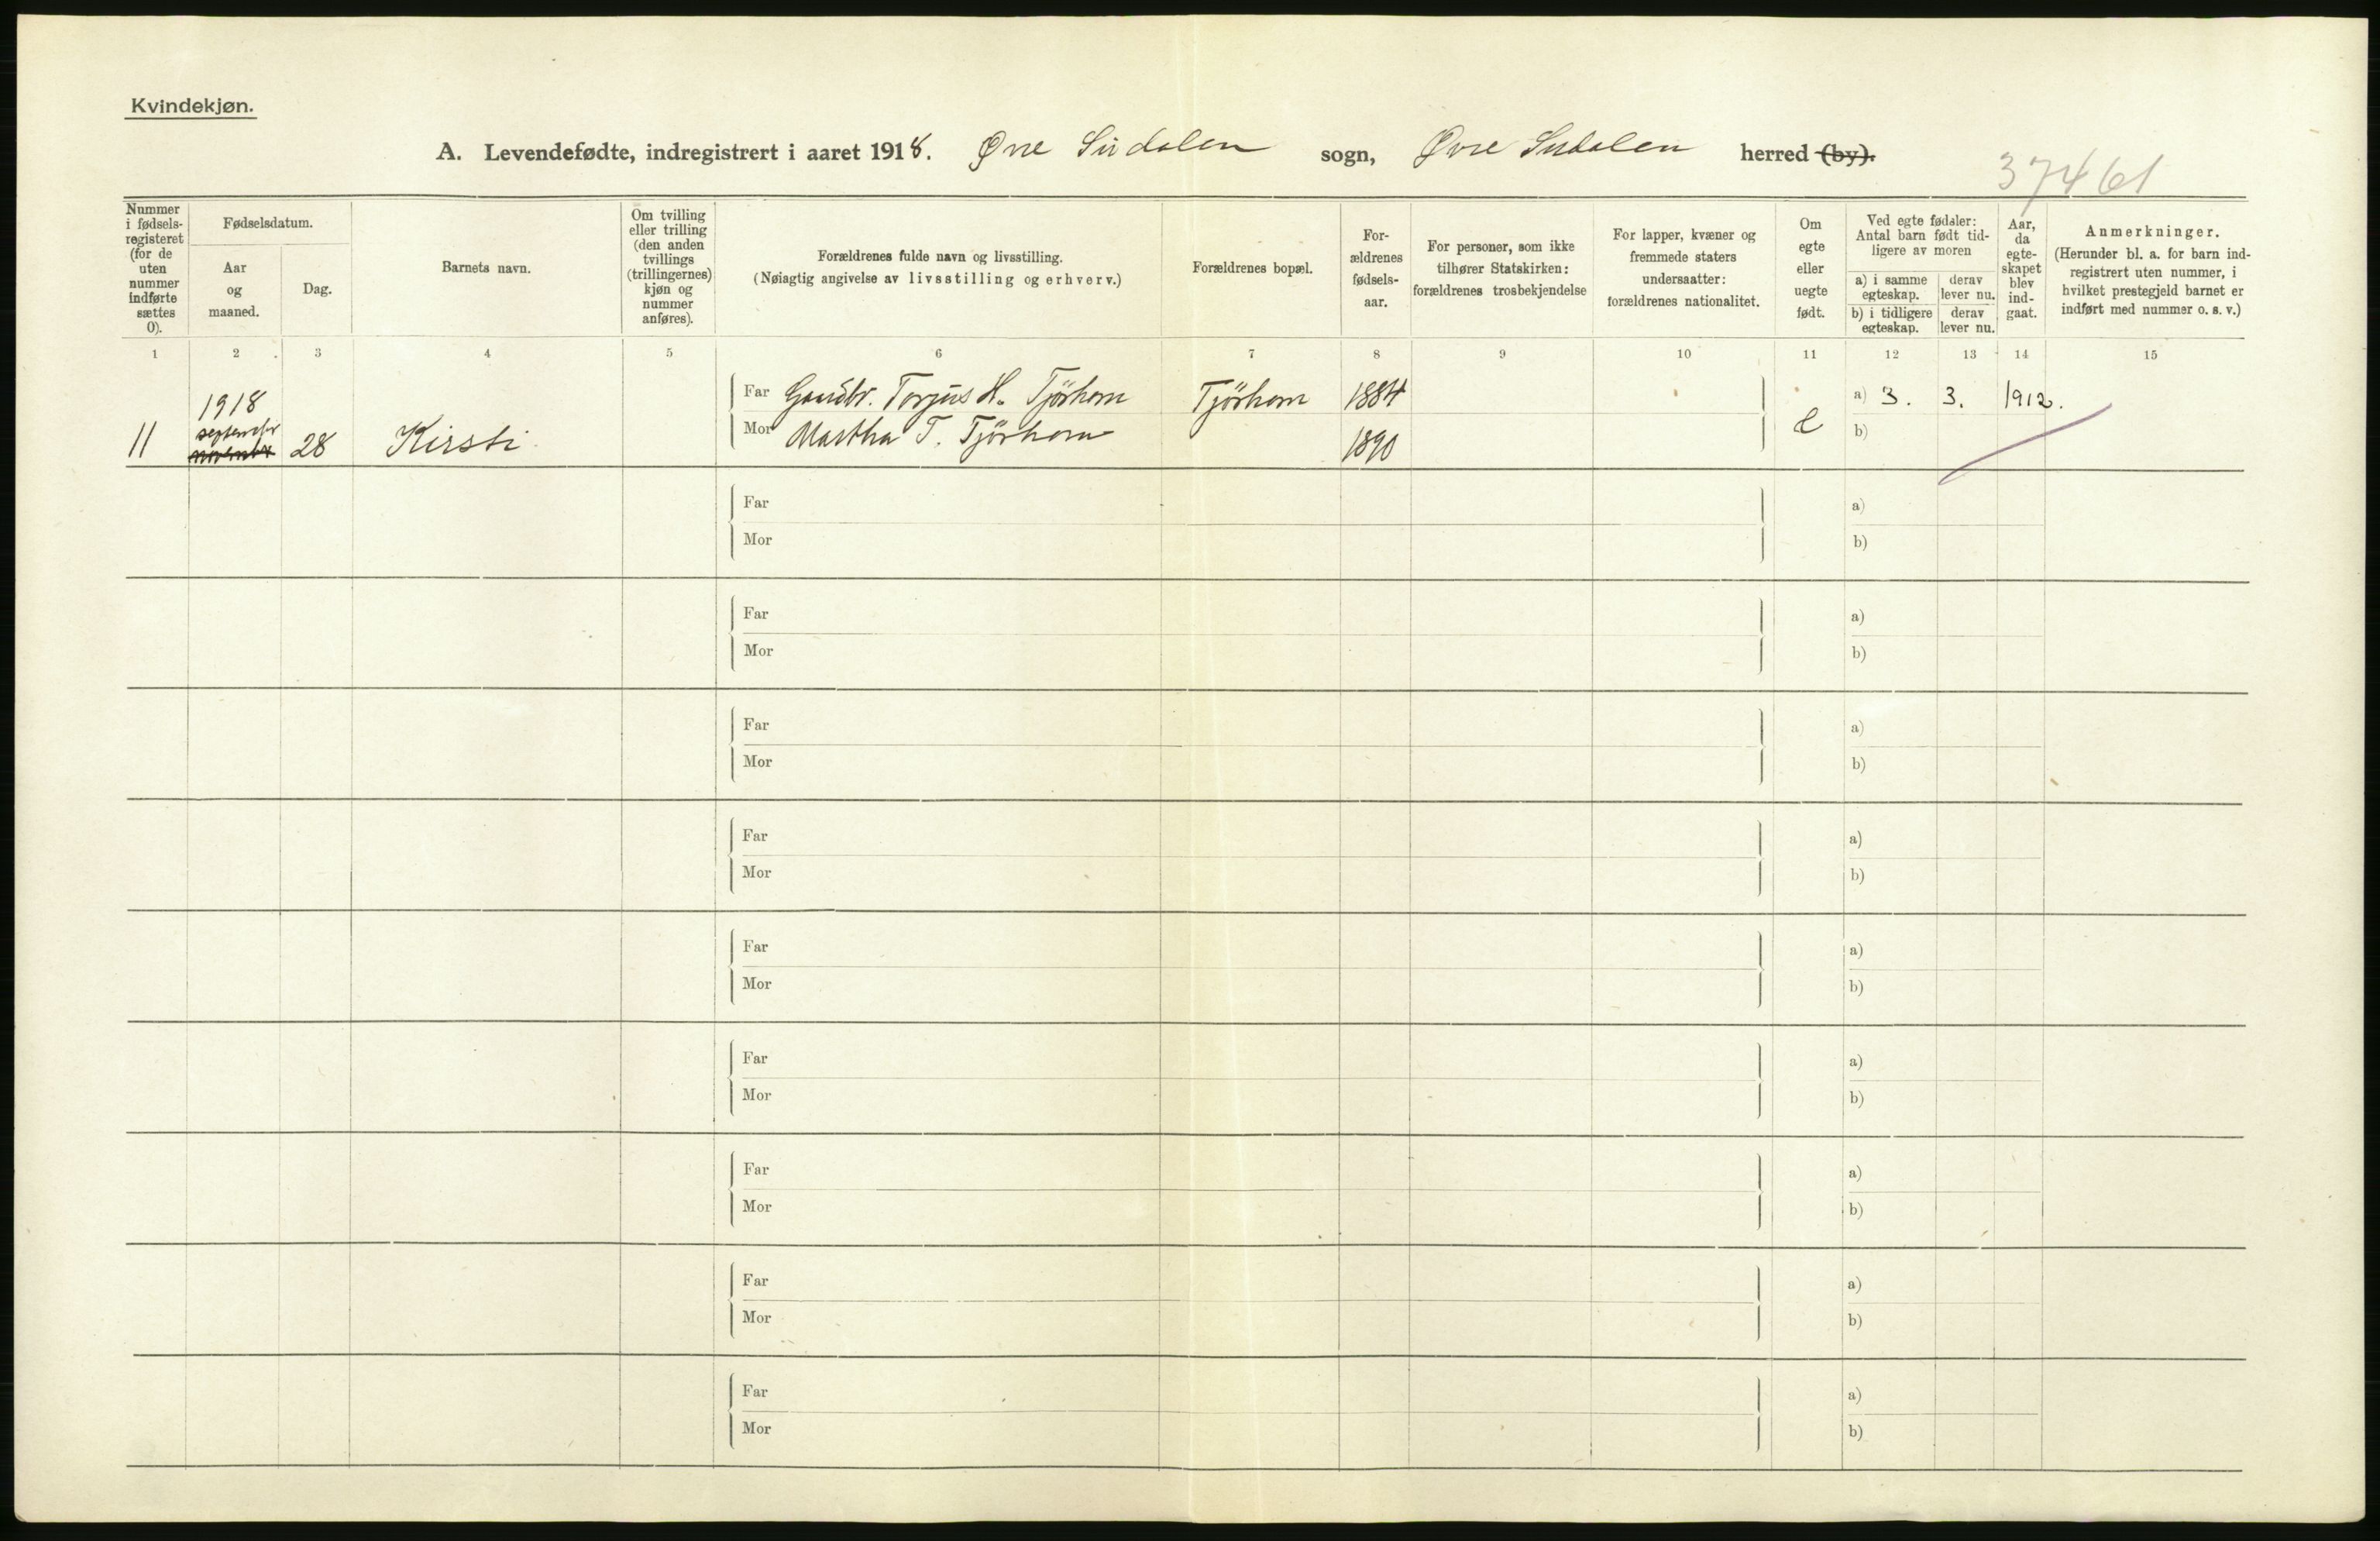 Kvindekjøn.
A. Levendefødte, indregistrert i aaret 1918. Øvre Sirdalen sogn, Øvre Sirdalen herred (by).
37461
Nummer i fødsels-registeret (for de uten nummer indførte sættes 0).
Fødselsdatum.
Aar og maaned.
Dag.
Barnets navn.
Om tvilling eller trilling (den anden tvillings (trillingernes) kjøn og nummer anføres).
Forældrenes fulde navn og livsstilling.
(Nøiagtig angivelse av livsstilling og erhverv.)
Forældrenes bopæl.
For-ældrenes fødsels-aar.
For personer, som ikke tilhører Statskirken: forældrenes trosbekjendelse
For lapper, kvæner og fremmede staters undersaatter: forældrenes nationalitet.
Om egte eller uegte født.
Ved egte fødsler: Antal barn født tid-ligere av moren
a) i samme egteskap.
derav lever nu.
b) i tidligere egteskap.
derav lever nu.
Aar, da egte-skapet blev ind-gaat.
Anmerkninger.
(Herunder bl. a. for barn ind-registrert uten nummer, i hvilket prestegjeld barnet er indført med nummer o. s. v.)
1 2 3 4 5 6 7 8 9 10 11 12 13 14 15
1918
Far Gaardbr. Torjus H. Tjörhom Tjörhom 1884 a) 3. 3. 1912.
september
11 november 28 Kirsti Mor Martha T. Tjörhom 1890 e b)
Far a)
Mor b)
Far a)
Mor b)
Far a)
Mor b)
Far a)
Mor b)
Far a)
Mor b)
Far a)
Mor b)
Far a)
Mor b)
Far a)
Mor b)
Far a)
Mor b)